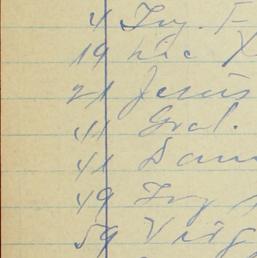 4 Ing. F
19 Lic
21 Jesús
41 Gral.
41 Dam
49 Ing
59 Virg